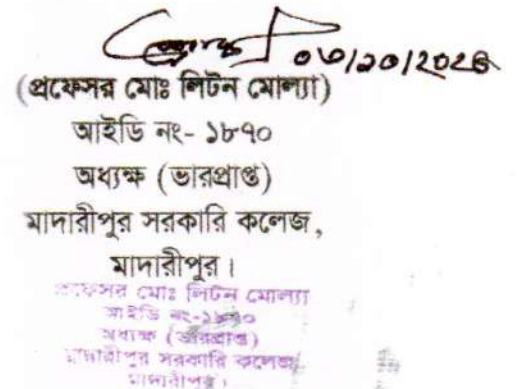 ০৬/১০/২০২৪
(প্রফেসর মোঃ লিটন মোল্যা)
আইডি নং- ১৮৭০
অধ্যক্ষ (ভারপ্রাপ্ত)
মাদারীপুর সরকারি কলেজ,
মাদারীপুর।
প্রফেসর মোঃ লিটন মোল্যা
আইডি নং-১৮৭০
অধ্যক্ষ (ভারপ্রাপ্ত)
মাদারীপুর সরকারি কলেজ
মাদারীপুর।